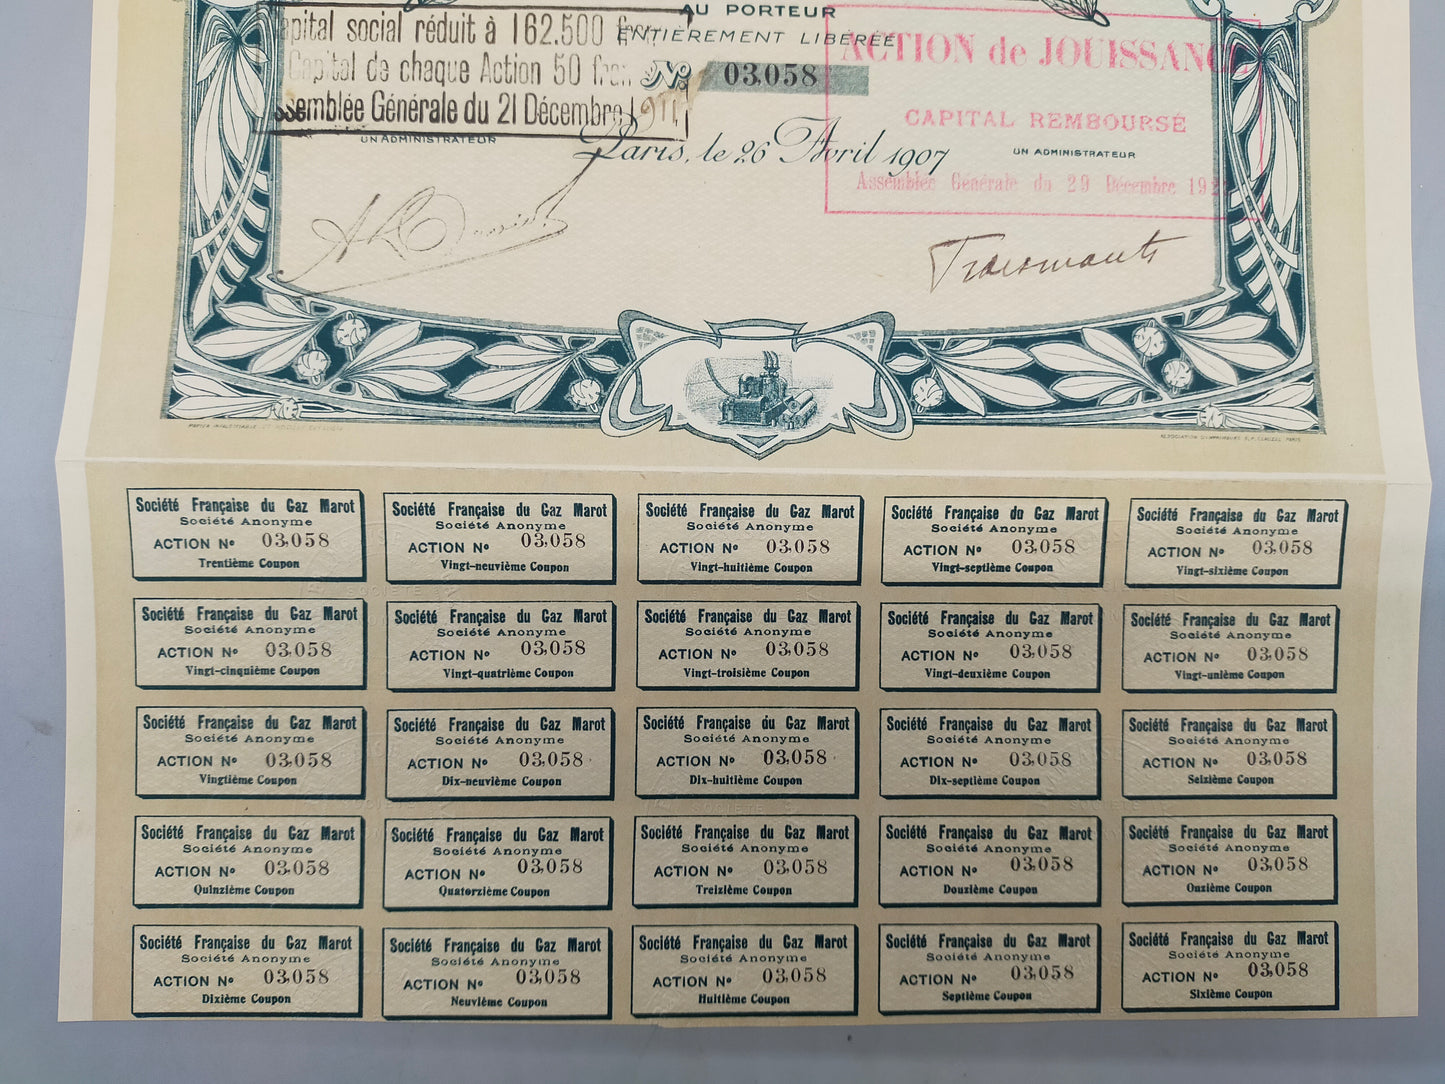 AU PORTEUR
ENTIÈREMENT LIBÉRÉE
Capital social réduit à 162.500
Capital de chaque Action 50
Assemblée Générale du 21 Décembre 19
No 03,058
ACTION de JOUISSANCE
CAPITAL REMBOURSÉ
Assemblée Générale du 29 Décembre 192
Paris, le 26 Avril 1907
UN ADMINISTRATEUR
UN ADMINISTRATEUR
Société Française du Gaz Marot
Société Anonyme
ACTION No 03,058
Trentième Coupon
Société Française du Gaz Marot
Société Anonyme
ACTION No 03,058
Vingt-neuvième Coupon
Société Française du Gaz Marot
Société Anonyme
ACTION No 03,058
Vingt-huitième Coupon
Société Française du Gaz Marot
Société Anonyme
ACTION No 03,058
Vingt-septième Coupon
Société Française du Gaz Marot
Société Anonyme
ACTION No 03,058
Vingt-sixième Coupon
Société Française du Gaz Marot
Société Anonyme
ACTION No 03,058
Vingt-cinquième Coupon
Société Française du Gaz Marot
Société Anonyme
ACTION No 03,058
Vingt-quatrième Coupon
Société Française du Gaz Marot
Société Anonyme
ACTION No 03,058
Vingt-troisième Coupon
Société Française du Gaz Marot
Société Anonyme
ACTION No 03,058
Vingt-deuxième Coupon
Société Française du Gaz Marot
Société Anonyme
ACTION No 03,058
Vingt-unième Coupon
Société Française du Gaz Marot
Société Anonyme
ACTION No 03,058
Vingtième Coupon
Société Française du Gaz Marot
Société Anonyme
ACTION No 03,058
Dix-neuvième Coupon
Société Française du Gaz Marot
Société Anonyme
ACTION No 03,058
Dix-huitième Coupon
Société Française du Gaz Marot
Société Anonyme
ACTION No 03,058
Dix-septième Coupon
Société Française du Gaz Marot
Société Anonyme
ACTION No 03,058
Seizième Coupon
Société Française du Gaz Marot
Société Anonyme
ACTION No 03,058
Quinzième Coupon
Société Française du Gaz Marot
Société Anonyme
ACTION No 03,058
Quatorzième Coupon
Société Française du Gaz Marot
Société Anonyme
ACTION No 03,058
Treizième Coupon
Société Française du Gaz Marot
Société Anonyme
ACTION No 03,058
Douzième Coupon
Société Française du Gaz Marot
Société Anonyme
ACTION No 03,058
Onzième Coupon
Société Française du Gaz Marot
Société Anonyme
ACTION No 03,058
Dixième Coupon
Société Française du Gaz Marot
Société Anonyme
ACTION No 03,058
Neuvième Coupon
Société Française du Gaz Marot
Société Anonyme
ACTION No 03,058
Huitième Coupon
Société Française du Gaz Marot
Société Anonyme
ACTION No 03,058
Septième Coupon
Société Française du Gaz Marot
Société Anonyme
ACTION No 03,058
Sixième Coupon